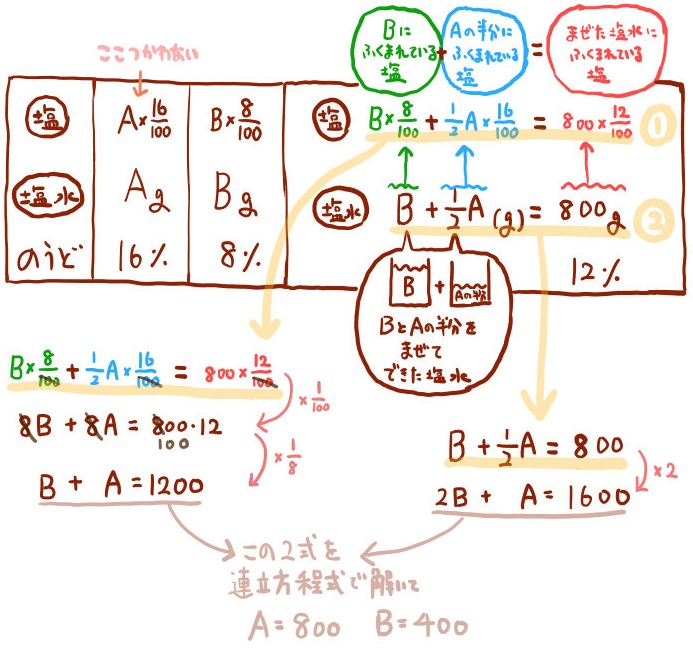 Bに
ふくまれている
塩
+
Aの半分に
ふくまれている
塩
=
まぜた塩水に
ふくまれている
塩
ここつかわない
塩 A×16/100 B×8/100
塩 B×8/100 + 1/2A×16/100 = 800×12/100 ①
塩水 Ag Bg
塩水 B + 1/2A (g) = 800g ②
のうど 16% 8% 12%
B + Aの半分
BとAの半分を
まぜて
できた塩水
B×8/100 + 1/2A×16/100 = 800×12/100
×1/100
8B + 8A = 800・12
100
×1/8
B + A = 1200
B + 1/2A = 800
×2
2B + A = 1600
この2式を
連立方程式で解いて
A=800 B=400